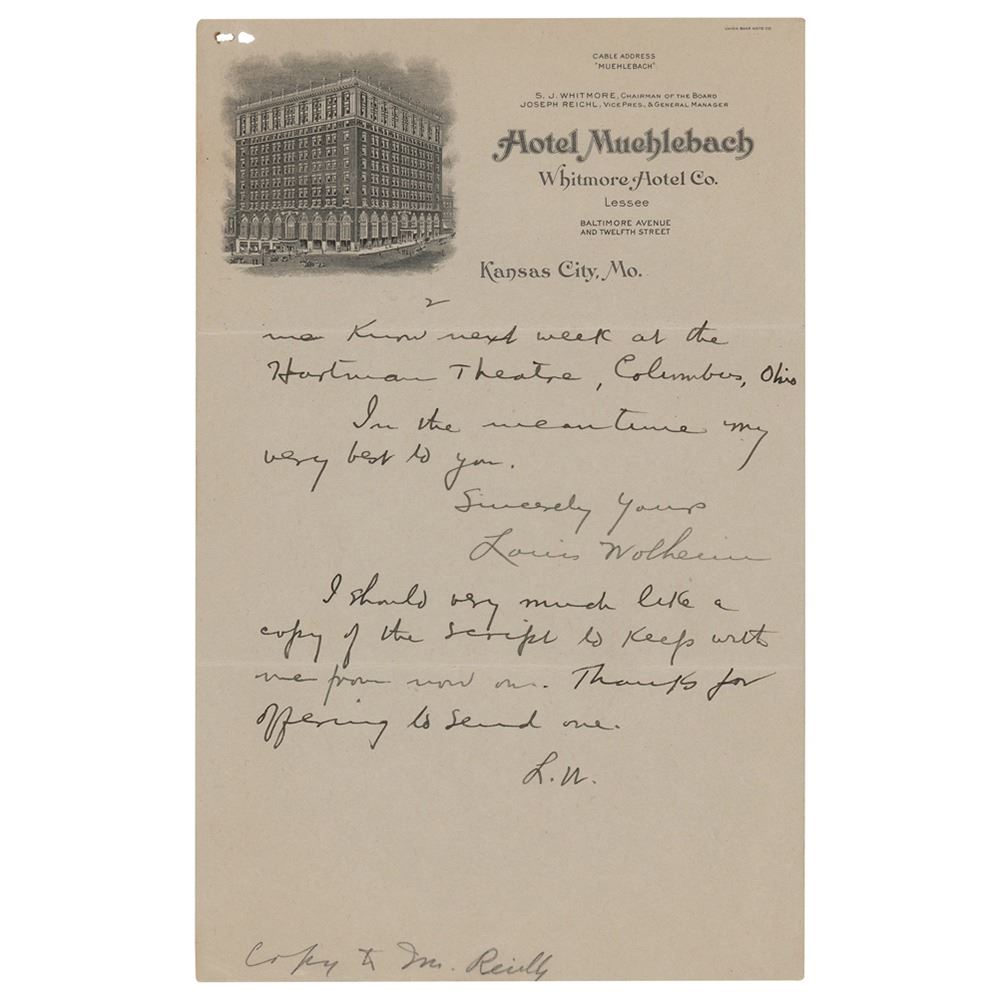 UNION BANK NOTE CO
CABLE ADDRESS
"MUEHLEBACH"
S. J. WHITMORE, CHAIRMAN OF THE BOARD
JOSEPH REICHL, VICE PRES. & GENERAL MANAGER
Hotel Muehlebach
Whitmore Hotel Co.
Lessee
BALTIMORE AVENUE
AND TWELFTH STREET
Kansas City, Mo.
2
me know next week at the
Hartman Theatre, Columbus, Ohio
In the meantime my
very best to you.
Sincerely Yours
Louis Wolheim
I should very much like a
copy of the script to keep with
me from now on. Thanks for
offering to send one.
L.W.
Copy to Mr. Reilly